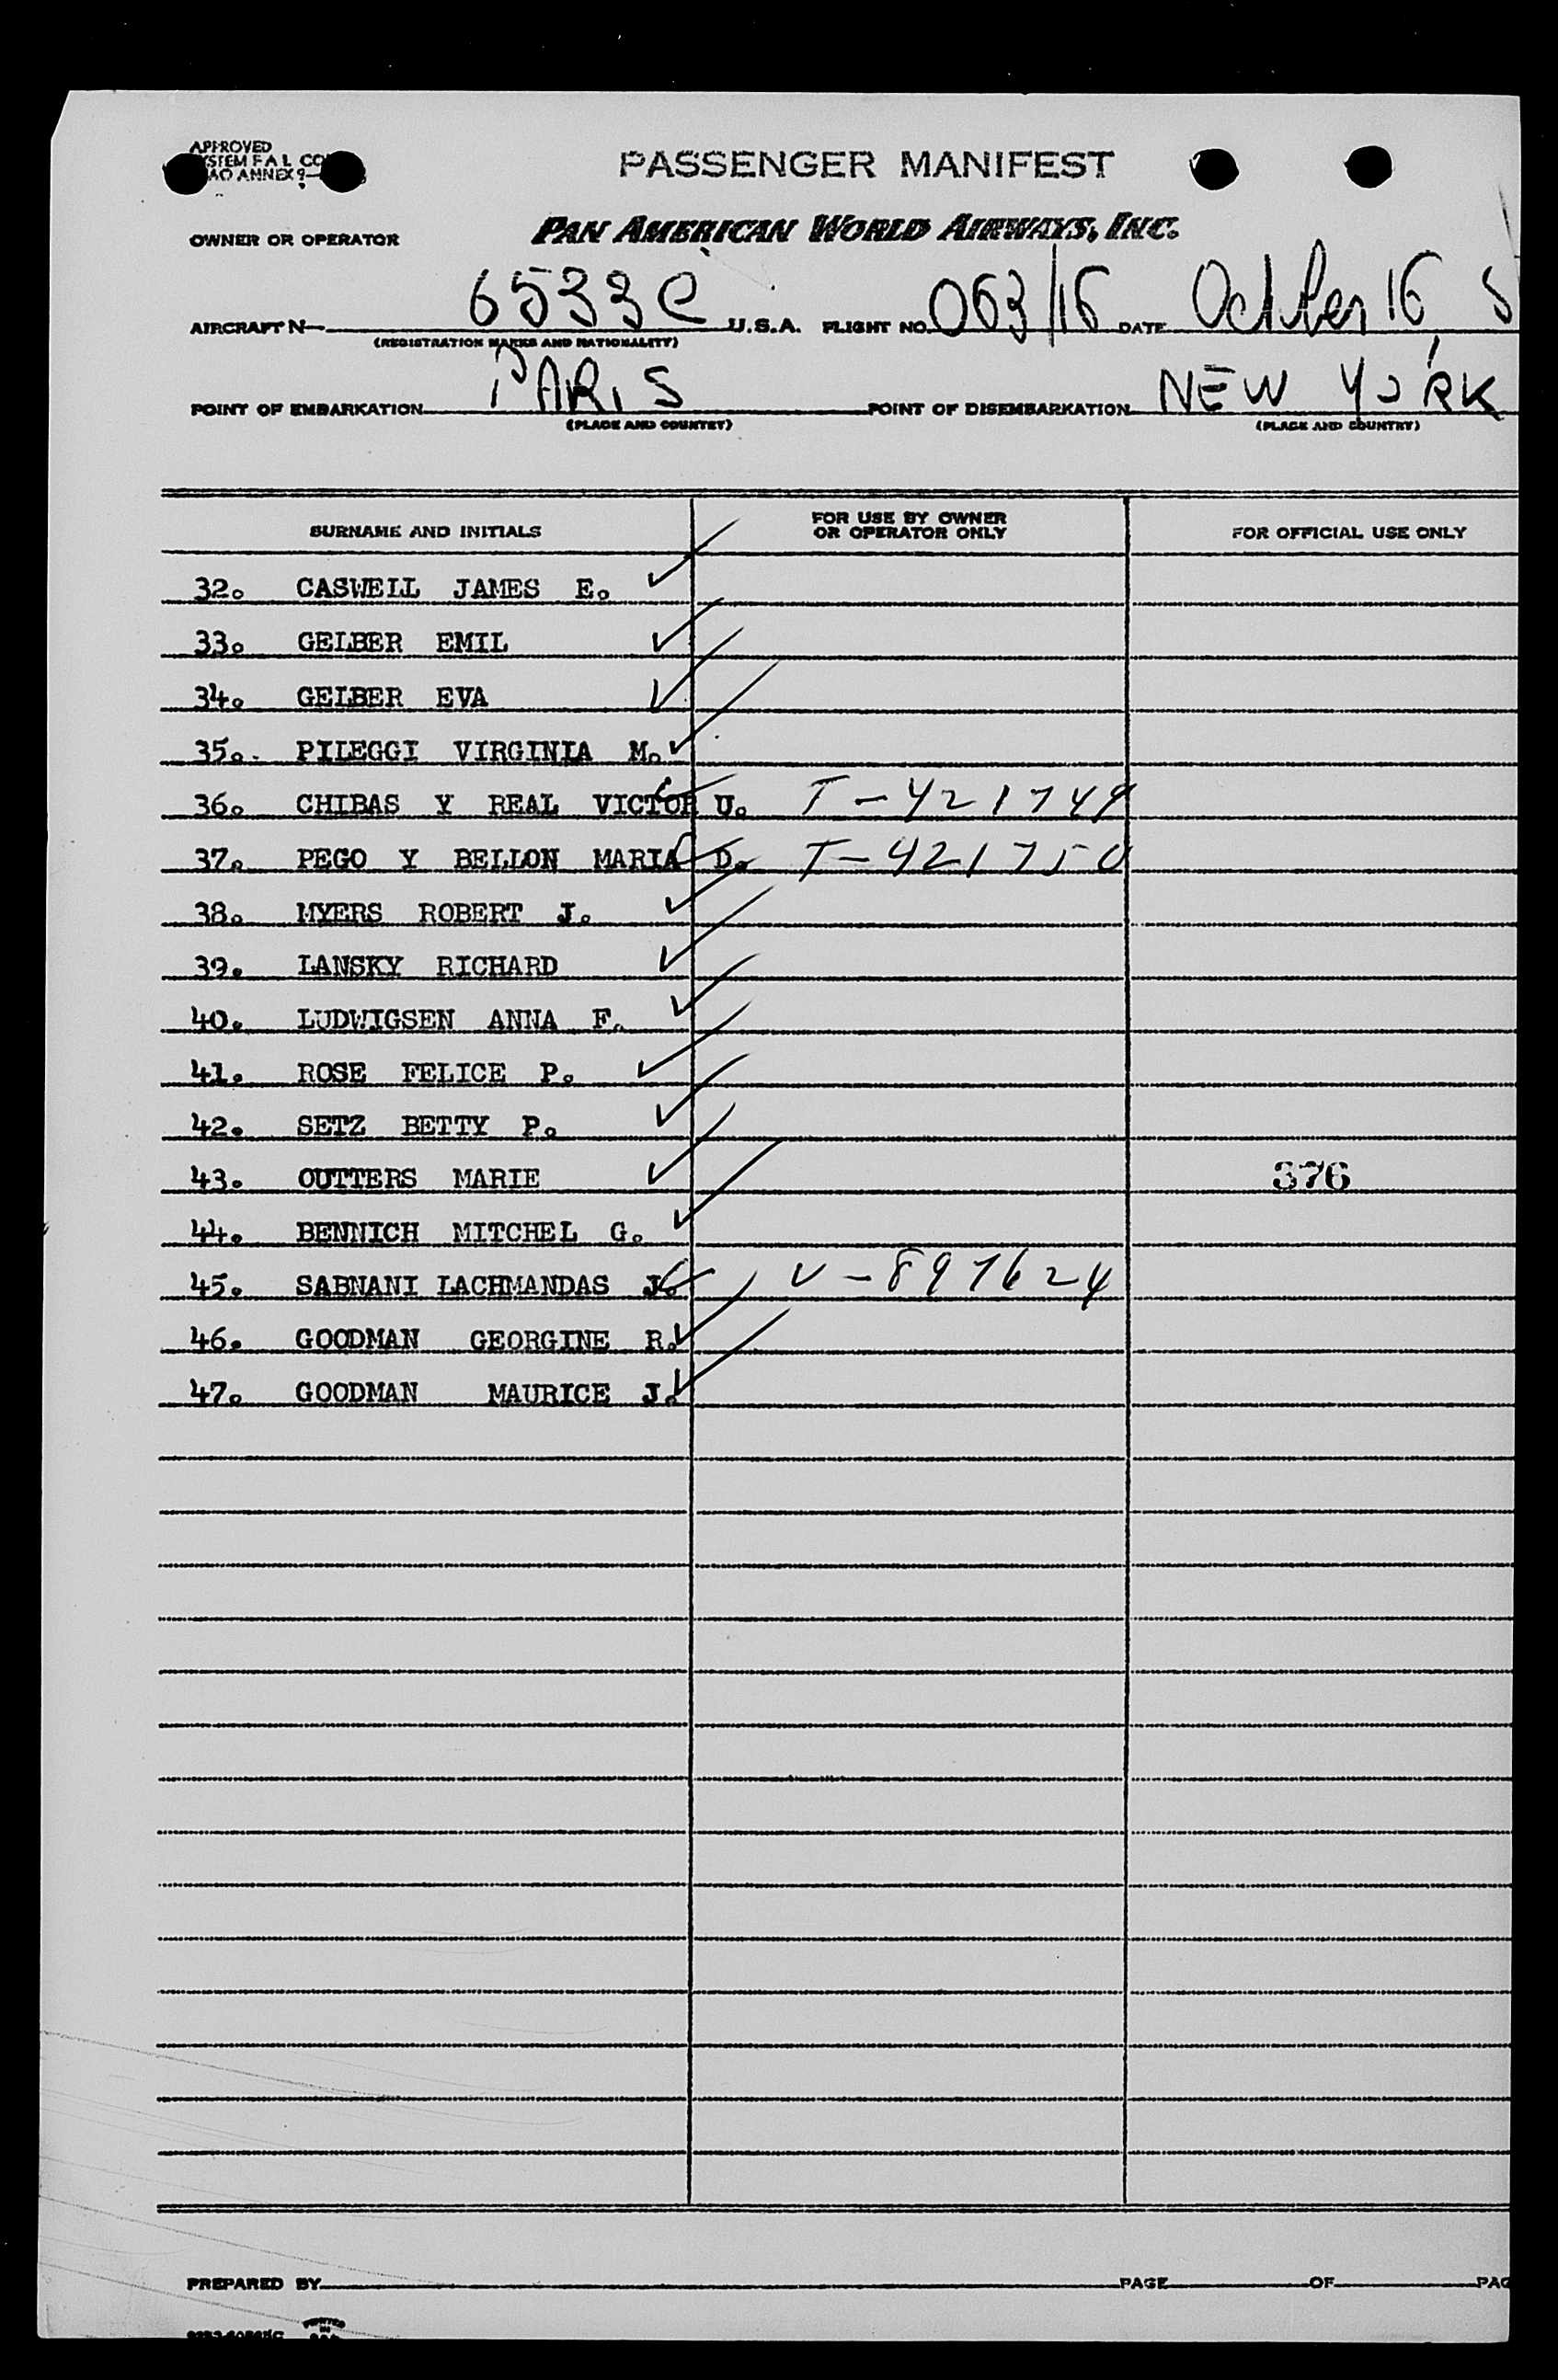 APPROVED
PASSENGER MANIFEST
ANNEX 9
OWNER OR OPERATOR PAN AMERICAN WORLD AIRWAYS, INC.
AIRCRAFT N 6533C U.S.A. FLIGHT NO. 063/16 DATE October 16, 5
(REGISTRATION MARKS AND NATIONALITY)
POINT OF EMBARKATION PARIS POINT OF DISEMBARKATION NEW YORK
(PLACE AND COUNTRY) (PLACE AND COUNTRY)
SURNAME AND INITIALS FOR USE BY OWNER OR OPERATOR ONLY FOR OFFICIAL USE ONLY
32. CASWELL JAMES E.
33. GELBER EMIL
34. GELBER EVA
35. PILEGGI VIRGINIA M.
36. CHIBAS Y REAL VICTOR U. T-421749
37. PEGO Y BELLON MARIA D. T-421750
38. MYERS ROBERT J.
39. LANSKY RICHARD
40. LUDWIGSEN ANNA F.
41. ROSE FELICE P.
42. SETZ BETTY P.
43. OUTTERS MARIE 376
44. BENNICH MITCHEL G.
45. SABNANI LACHMANDAS J. V-897624
46. GOODMAN GEORGINE R.
47. GOODMAN MAURICE J.
PREPARED BY PAGE OF PAG